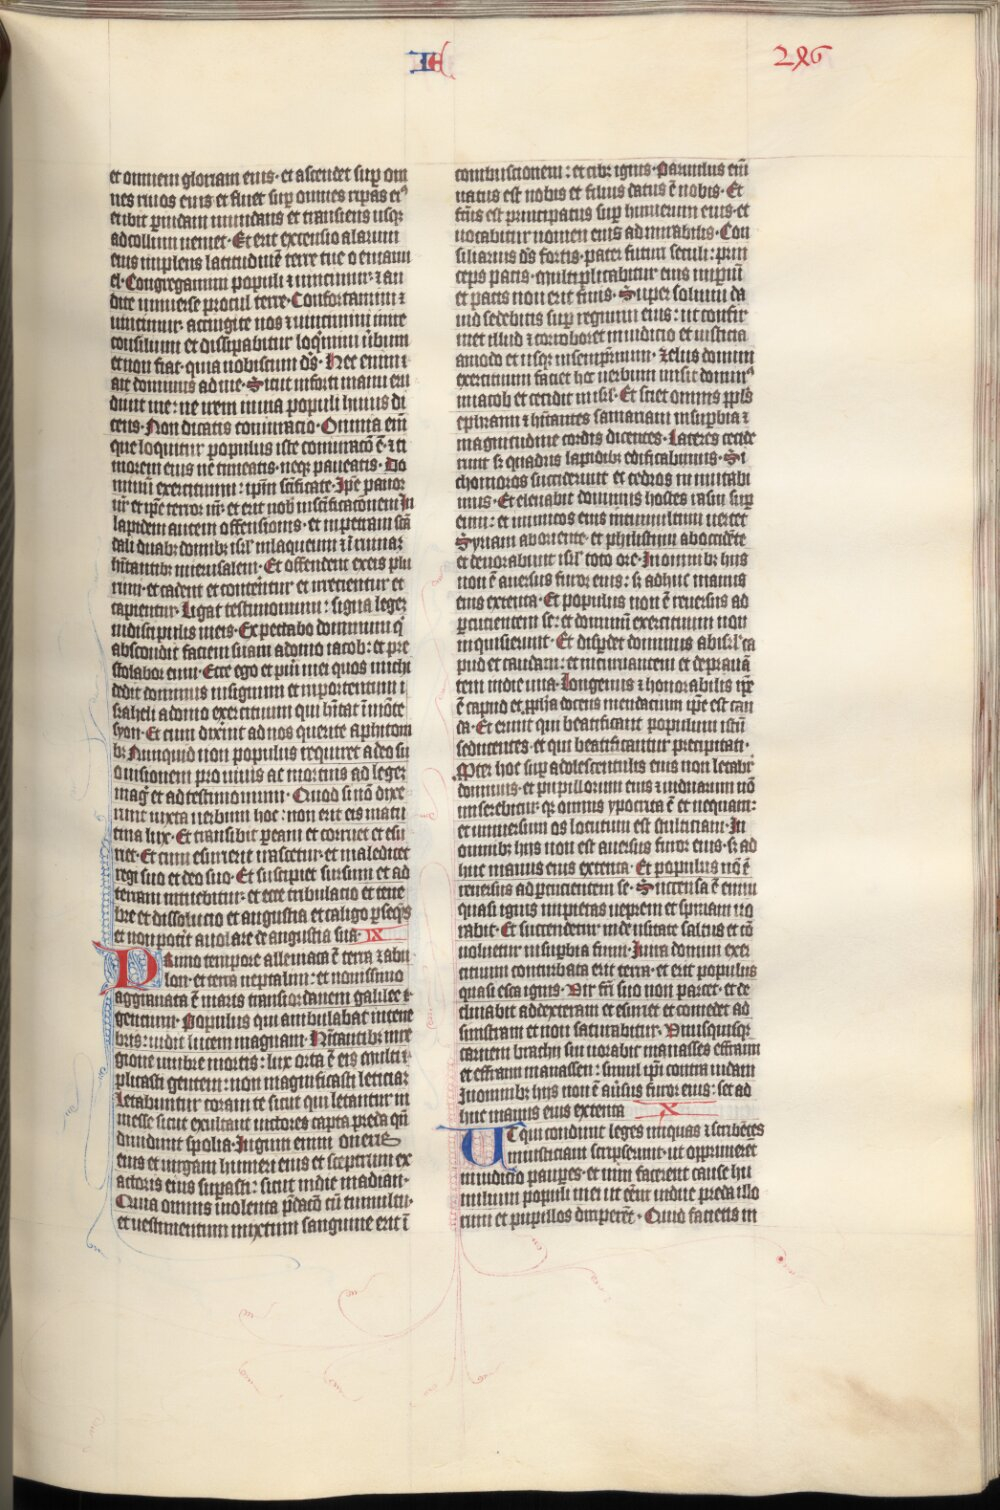 IE
286
et omnem gloriam eius· et ascendet sup̲ om
nes riuos eius et fluet sup̲ omnes ripas eiꝰ
et ibit p̲ iudam inundans et transiens usqꝫ
ad collum ueniet· Et erit extensio alarum
eius implens latitudinē terre tue o emanu
el· Congregamini populi ⁊ uincimini· ⁊ au
dite uniuerse procul terre· Confortamini ⁊
uincimini· accingite uos ⁊ uincimini inite
consilium et dissipabitur loq̇mini ūbum
et non fiet· quia nobiscum ds̄· Hec enim
ait dominus ad me· Sicut in forti manu eru
diuit me: ne irem in uia populi huius di
cens· Non dicatis coniuracio· Omnia em̄
que loquitur populus iste coniuracō ē· ⁊ ti
morem eius ne timeatis· neqꝫ paueatis· Do
minū exercituum: ipm̄ sc̄ificate· Ipē pauor
ur̄ et ipē terror ur̄· et erit uob̄ in sc̄ificacōnem In
lapidem autem offensionis· et in petram scā
dali duabꝫ domibꝫ isrl̄ in laqueum ⁊ ī ruinaꝫ
hītantibꝫ in ierusalem· Et offendent ex eis plu
rimi· et cadent et conterētur et irretientur et
capientur· Liga testimonium: signa legeꝫ
in discipulis meis· Expectabo dominum q̇
abscondit faciem suam a domo iacob: et pre
stolabor eum· Ecce ego et pu̇i mei quos michi
dedit dominus in signum et in portentum i
srahel a domo exercituum qui hītat ī mōte
syon· Et cum dixīnt ad uos querite a phitom
bꝫ Nunquid non populus requiret a deo su
o uisionem pro uiuis ac mortuis ad legeꝫ
mag̓ et ad testimonium· Quod si nō dixe
rint iuxta uerbum hoc: non erit eis matu
tina lux· Et transibit p̲ eam et corruet et esu
riet· Et cum esurierit irascetur· et maledicet
regi suo et deo suo· Et suscipiet sursum et ad
terram intuebitur· et ecce tribulacio et tene
bre et dissolucio et angustia et caligo p̲seqn̄s
et non pot̓it auolare de angustia sua· IX
Primo tempore alleuiata ē terra zabu
lon· et terra neptalim: et nouissimo
aggrauata ē maris trans iordanem galilee
gentium· Populus qui ambulabat in tene
bris: uidit lucem magnam· Hītantibꝫ in re
gione umbre mortis: lux orta ē eis Multi
plicasti gentem: non magnificasti leticiaꝫ
Letabuntur coram te sicut qui letantur in
messe sicut exultant uictores capta preda qn̄
diuidunt spolia· Iugum enim oneris
eius et uirgam humeri eius et sceptrum ex
actoris eius sup̲asti: sicut in die madian·
Quia omnis uiolenta p̄dacō cū tumultu·
et uestimentum mixtum sanguine erit ī
combustionem: et cibꝫ ignis· Paruulus em̄
natus est nobis et filius datus ē nobis· Et
fc̄us est principatus sup̲ humerum eius· et
uocabitur nomen eius admirabilis· Con
siliarius ds̄ fortis· pater futuri seculi: prin
ceps pacis· Multiplicabitur eius imperiū
et pacis non erit finis· Super solium da
uid sedebitis sup̲ regnum eius: ut confir
met illud ⁊ corroboret in iudicio et iusticia
amodo et usqꝫ in sempit̓num· Zelus domini
exercituum faciet hec uerbum misit dominꝰ
in iacob et cecidit in isrl̄· Et sciet omnis ppl̄s
ephraim ⁊ hītantes samariam in sup̲bia ⁊
magnitudine cordis dicentes· Lateres cecide
runt sꝫ quadris lapidibꝫ edificabimus· Si
chomoros succiderunt et cedros inmutabi
mus· Et eleuabit dominus hostes rasin sup̲
eum: et inimicos eius in tumultum uertet
Syriam ab oriente· et philistijm ab occidēte
et deuorabunt isrl̄ toto ore· In omnibꝫ hijs
non ē auersus furor eius: sꝫ adhuc manus
eius extenta· Et populus non ē reuersus ad
p̲cucientem se: et dominū exercituum non
inquisierunt· Et disp̲det dominus ab isrl̄ ca
pud et caudam: et incuruantem et deprauā
tem in die una· Longeuus ⁊ honorabilis ipē
ē capud et pp̄ha docens mendacium ipē est cau
da· Et erunt qui beatificant populum istū
seducentes· et qui beatificantur precipitati·
Pter hoc sup̲ adolescentulis eius non letabr̄
dominus· et pupillorum eius ⁊ uiduarum nō
miserebitur· qꝫ omnis ypocrita ē et nequam:
et uniuersum os locutum est stulticiam· In
omnibꝫ hijs non est auersus furor eius· sꝫ ad
huc manus eius extenta· Et populus nō ē
reuersus ad p̲cucientem se· Succensa ē enim
quasi ignis impietas ueprem et spinam uo
rabit· Et succendetur in densitate saltus et cō
uoluetur in sup̲bia fumi· In ira domini exer
cituum conturbata erit terra· et erit populus
quasi esca ignis· Vir fr̄i suo non parcet· et de
clinabit ad dexteram et esuriet et comedet ad
sinistram et non saturabitur· Vnusquisqꝫ
carnem brachij sui uorabit manasses effraim
et effraim manassen: simul ipī contra iudam
In omnibꝫ hijs non ē au̓sus furor eius: set ad
huc manus eius extenta X
Ue qui condunt leges iniquas ⁊ scribētes
iniusticiam scripserunt· ut opprimerēt
in iudicio paup̲es· et uim facerent cause hu
milium populi mei ut eēnt uidue preda illo
rum et pupillos dirip̲ent· Quid facietis in